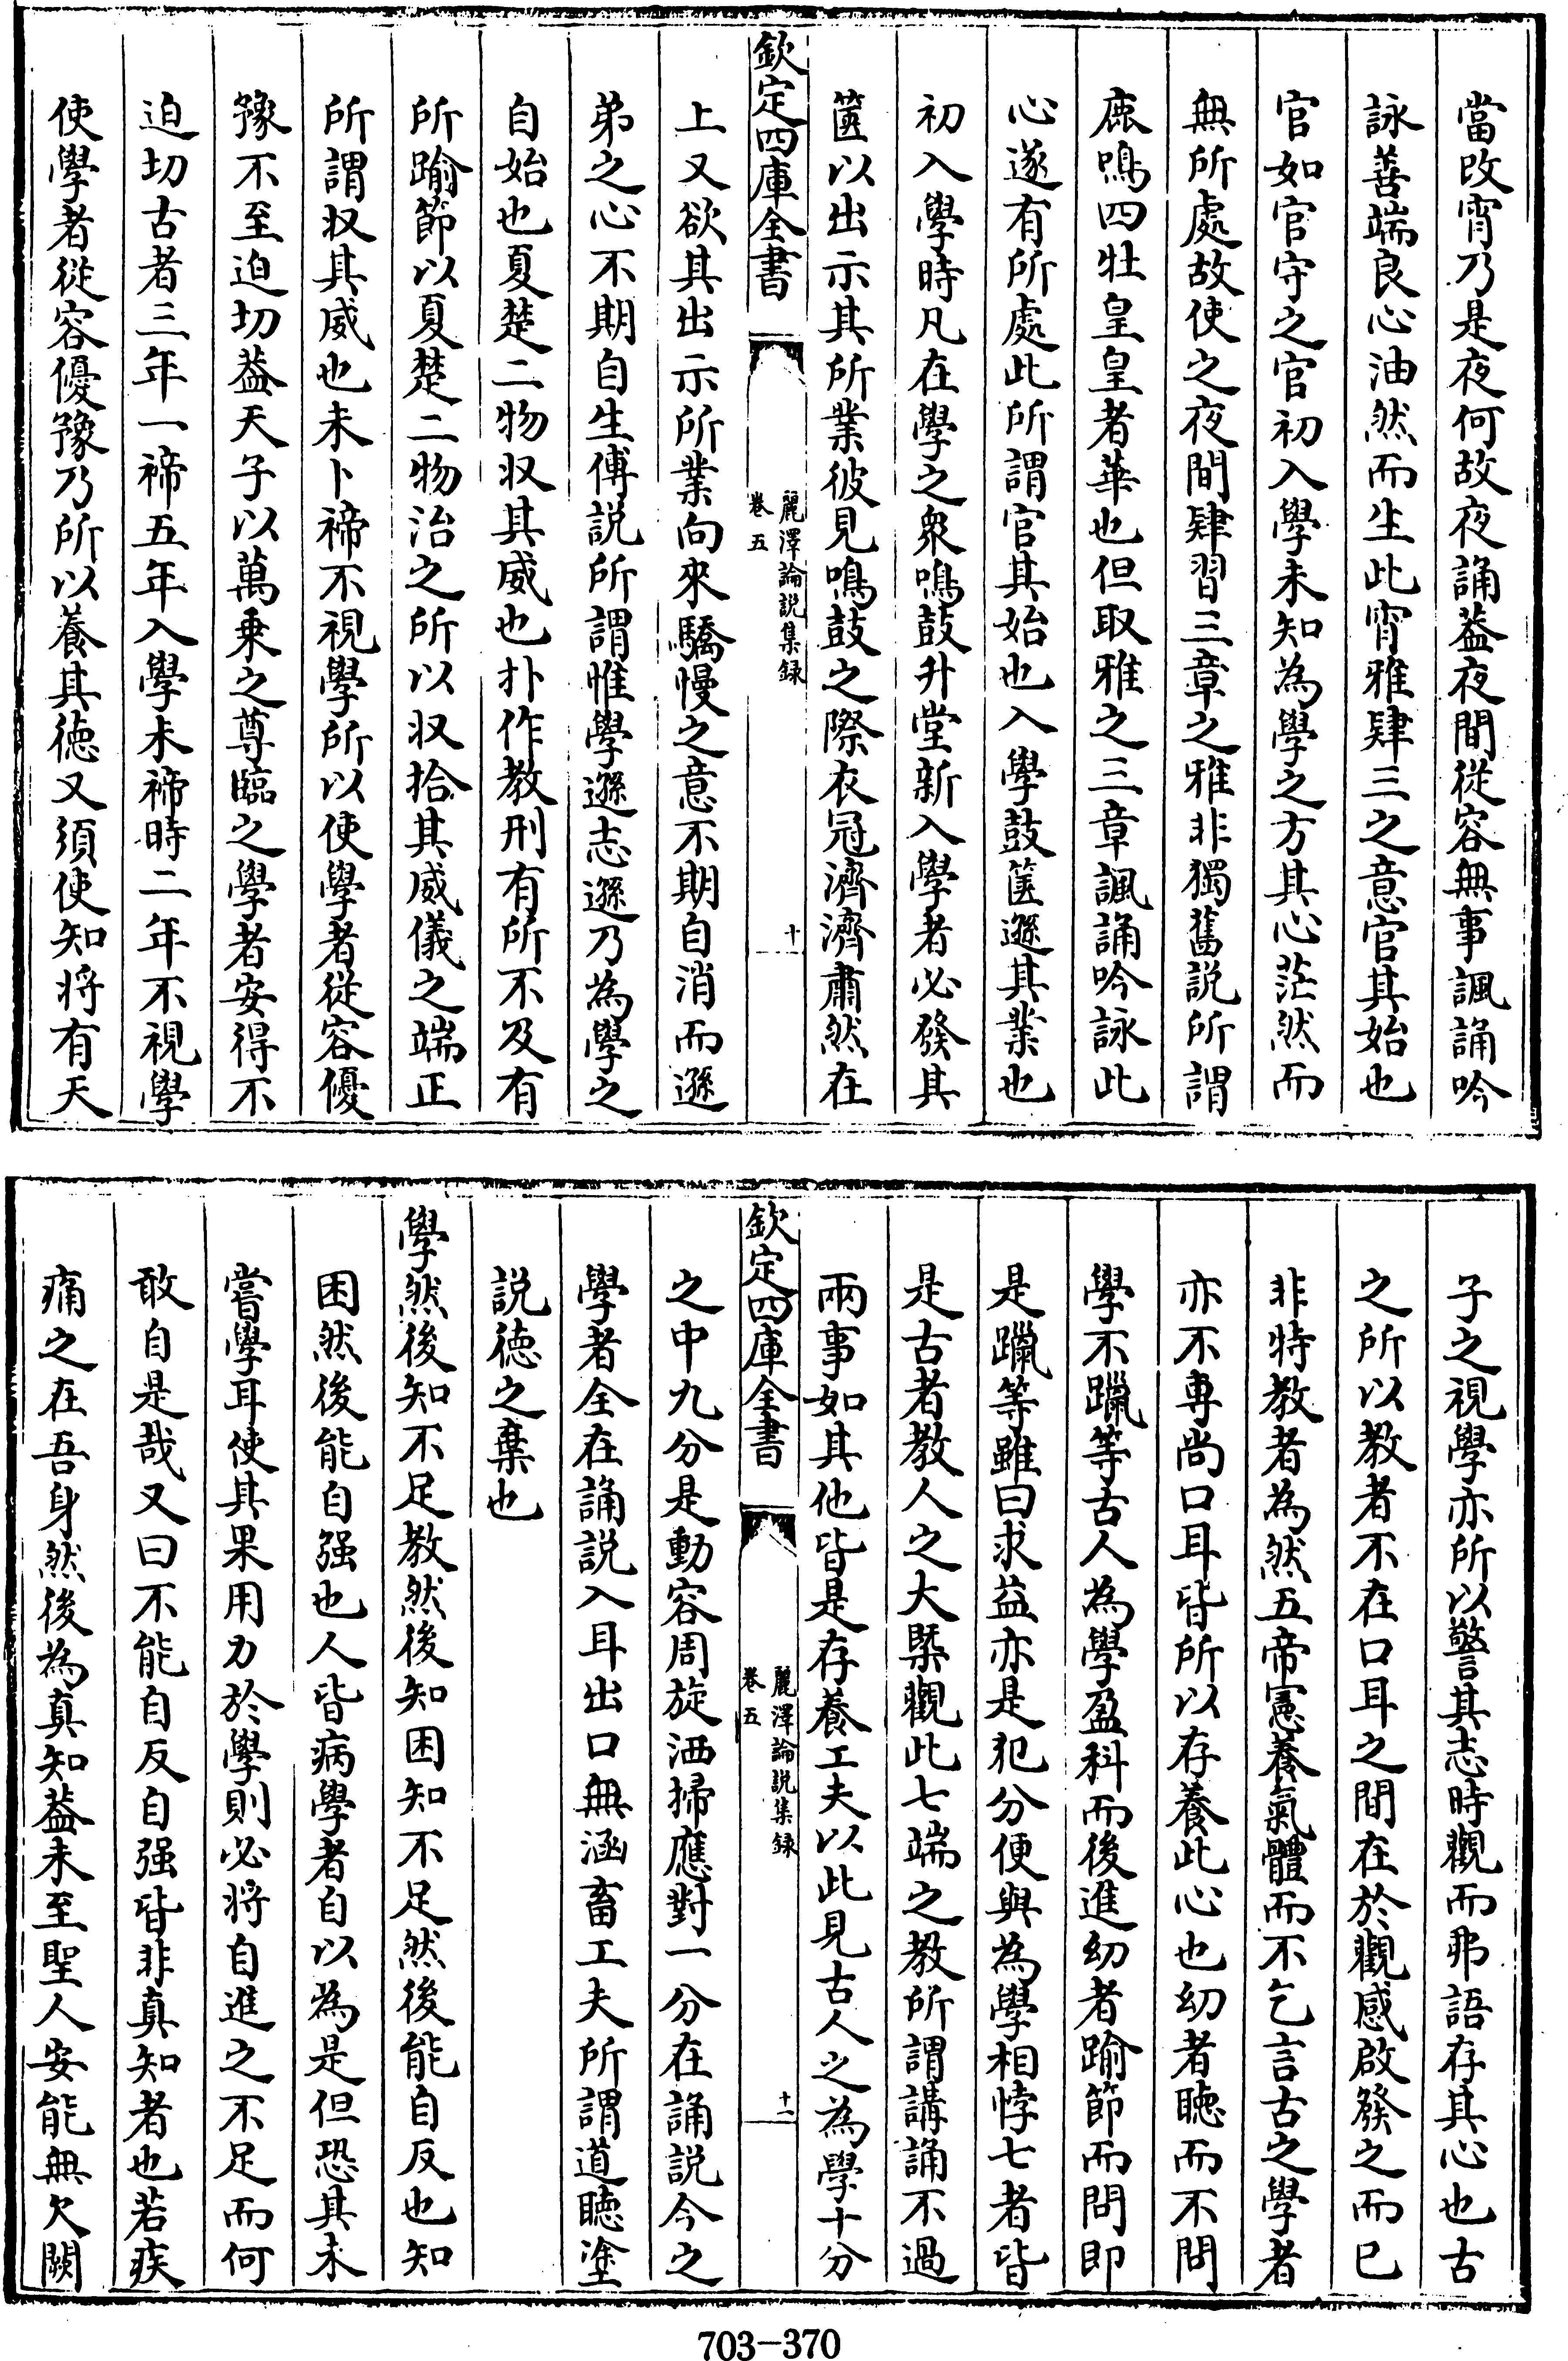 當改宵乃是夜何故夜誦葢夜間從容無事諷誦吟
詠善端良心油然而生此宵雅肄三之意官其始也
官如官守之官初入學未知為學之方其心茫然而
無所處故使之夜間肄習三章之雅非獨舊説所謂
鹿鳴四牡皇皇者華也但取雅之三章諷誦吟詠此
心遂有所處此所謂官其始也入學鼓篋遜其業也
初入學時凡在學之衆鳴鼓升堂新入學者必發其
篋以出示其所業彼見鳴鼓之際衣冠濟濟肅然在
欽定四庫全書
麗澤論説集録
卷五
十
上又欲其出示所業向來驕慢之意不期自消而遜
弟之心不期自生傅説所謂惟學遜志遜乃為學之
自始也夏楚二物収其威也扑作教刑有所不及有
所踰節以夏楚二物治之所以収拾其威儀之端正
所謂収其威也未卜禘不視學所以使學者從容優
豫不至迫切葢天子以萬乗之尊臨之學者安得不
迫切古者三年一禘五年入學未禘時二年不視學
使學者從容優豫乃所以養其徳又須使知将有天
子之視學亦所以警其志時觀而弗語存其心也古
之所以教者不在口耳之間在於觀感啟發之而已
非特教者為然五帝憲養氣體而不乞言古之學者
亦不専尚口耳皆所以存養此心也幼者聴而不問
學不躐等古人為學盈科而後進幼者踰節而問即
是躐等雖曰求益亦是犯分便與為學相悖七者皆
是古者教人之大槩觀此七端之教所謂講誦不過
兩事如其他皆是存養工夫以此見古人之為學十分
欽定四庫全書
麗澤論説集録
卷五
十一
之中九分是動容周旋洒掃應對一分在誦説今之
學者全在誦説入耳出口無涵畜工夫所謂道聴塗
説徳之棄也
學然後知不足教然後知困知不足然後能自反也知
困然後能自强也人皆病學者自以為是但恐其未
嘗學耳使其果用力於學則必将自進之不足而何
敢自是哉又曰不能自反自强皆非真知者也若疾
痛之在吾身然後為真知葢未至聖人安能無欠闕
703-370